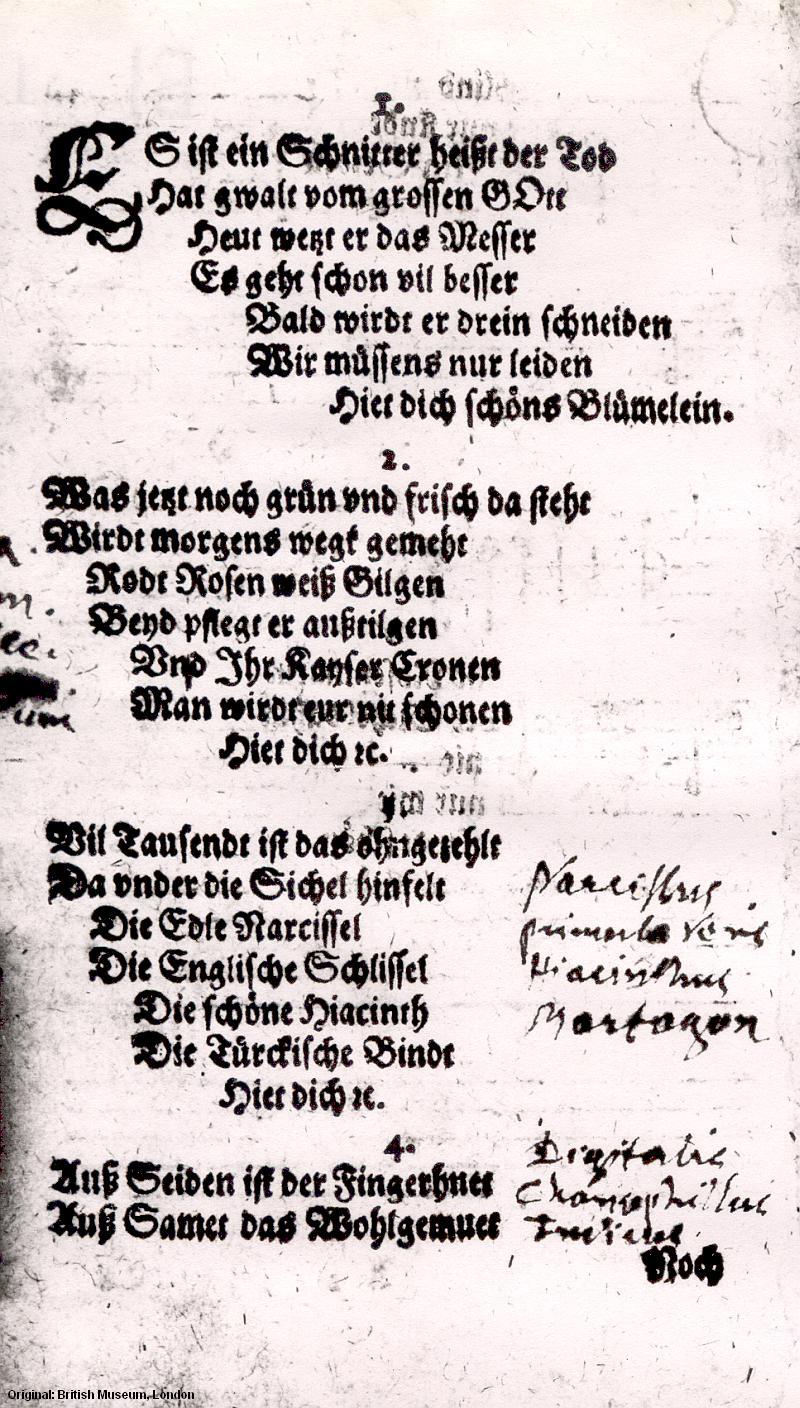 1.
ES ist ein Schnitter heißt der Tod
Hat gwalt vom grossen GOtt
Heut wetzt er das Messer
Es geht schon vil besser
Bald wirdt er drein schneiden
Wir müssens nur leiden
Hiet dich schöns Blümelein.
2.
Was jetzt noch grün vnd frisch da steht
Wirdt morgens wegk gemeht
Rodt Rosen weiß Gilgen
Beyd pflegt er außtilgen
Vnd Ihr Kayser Cronen
Man wirdt eur nit schonen
Hiet dich ꝛc.
Vil Tausendt ist das ohngezehlt
Da vnder die Sichel hinfelt
Die Edle Narcissel
Die Englische Schlissel
Die schöne Hiacinth
Die Türckische Bindt
Hiet dich ꝛc.
Narcissus
primula veris
Hiacinthus
Martagon
4.
Auß Seiden ist der Fingerhuet
Auß Samet das Wohlgemuet
Digitalis
Indicus
Noch
Original: British Museum, London